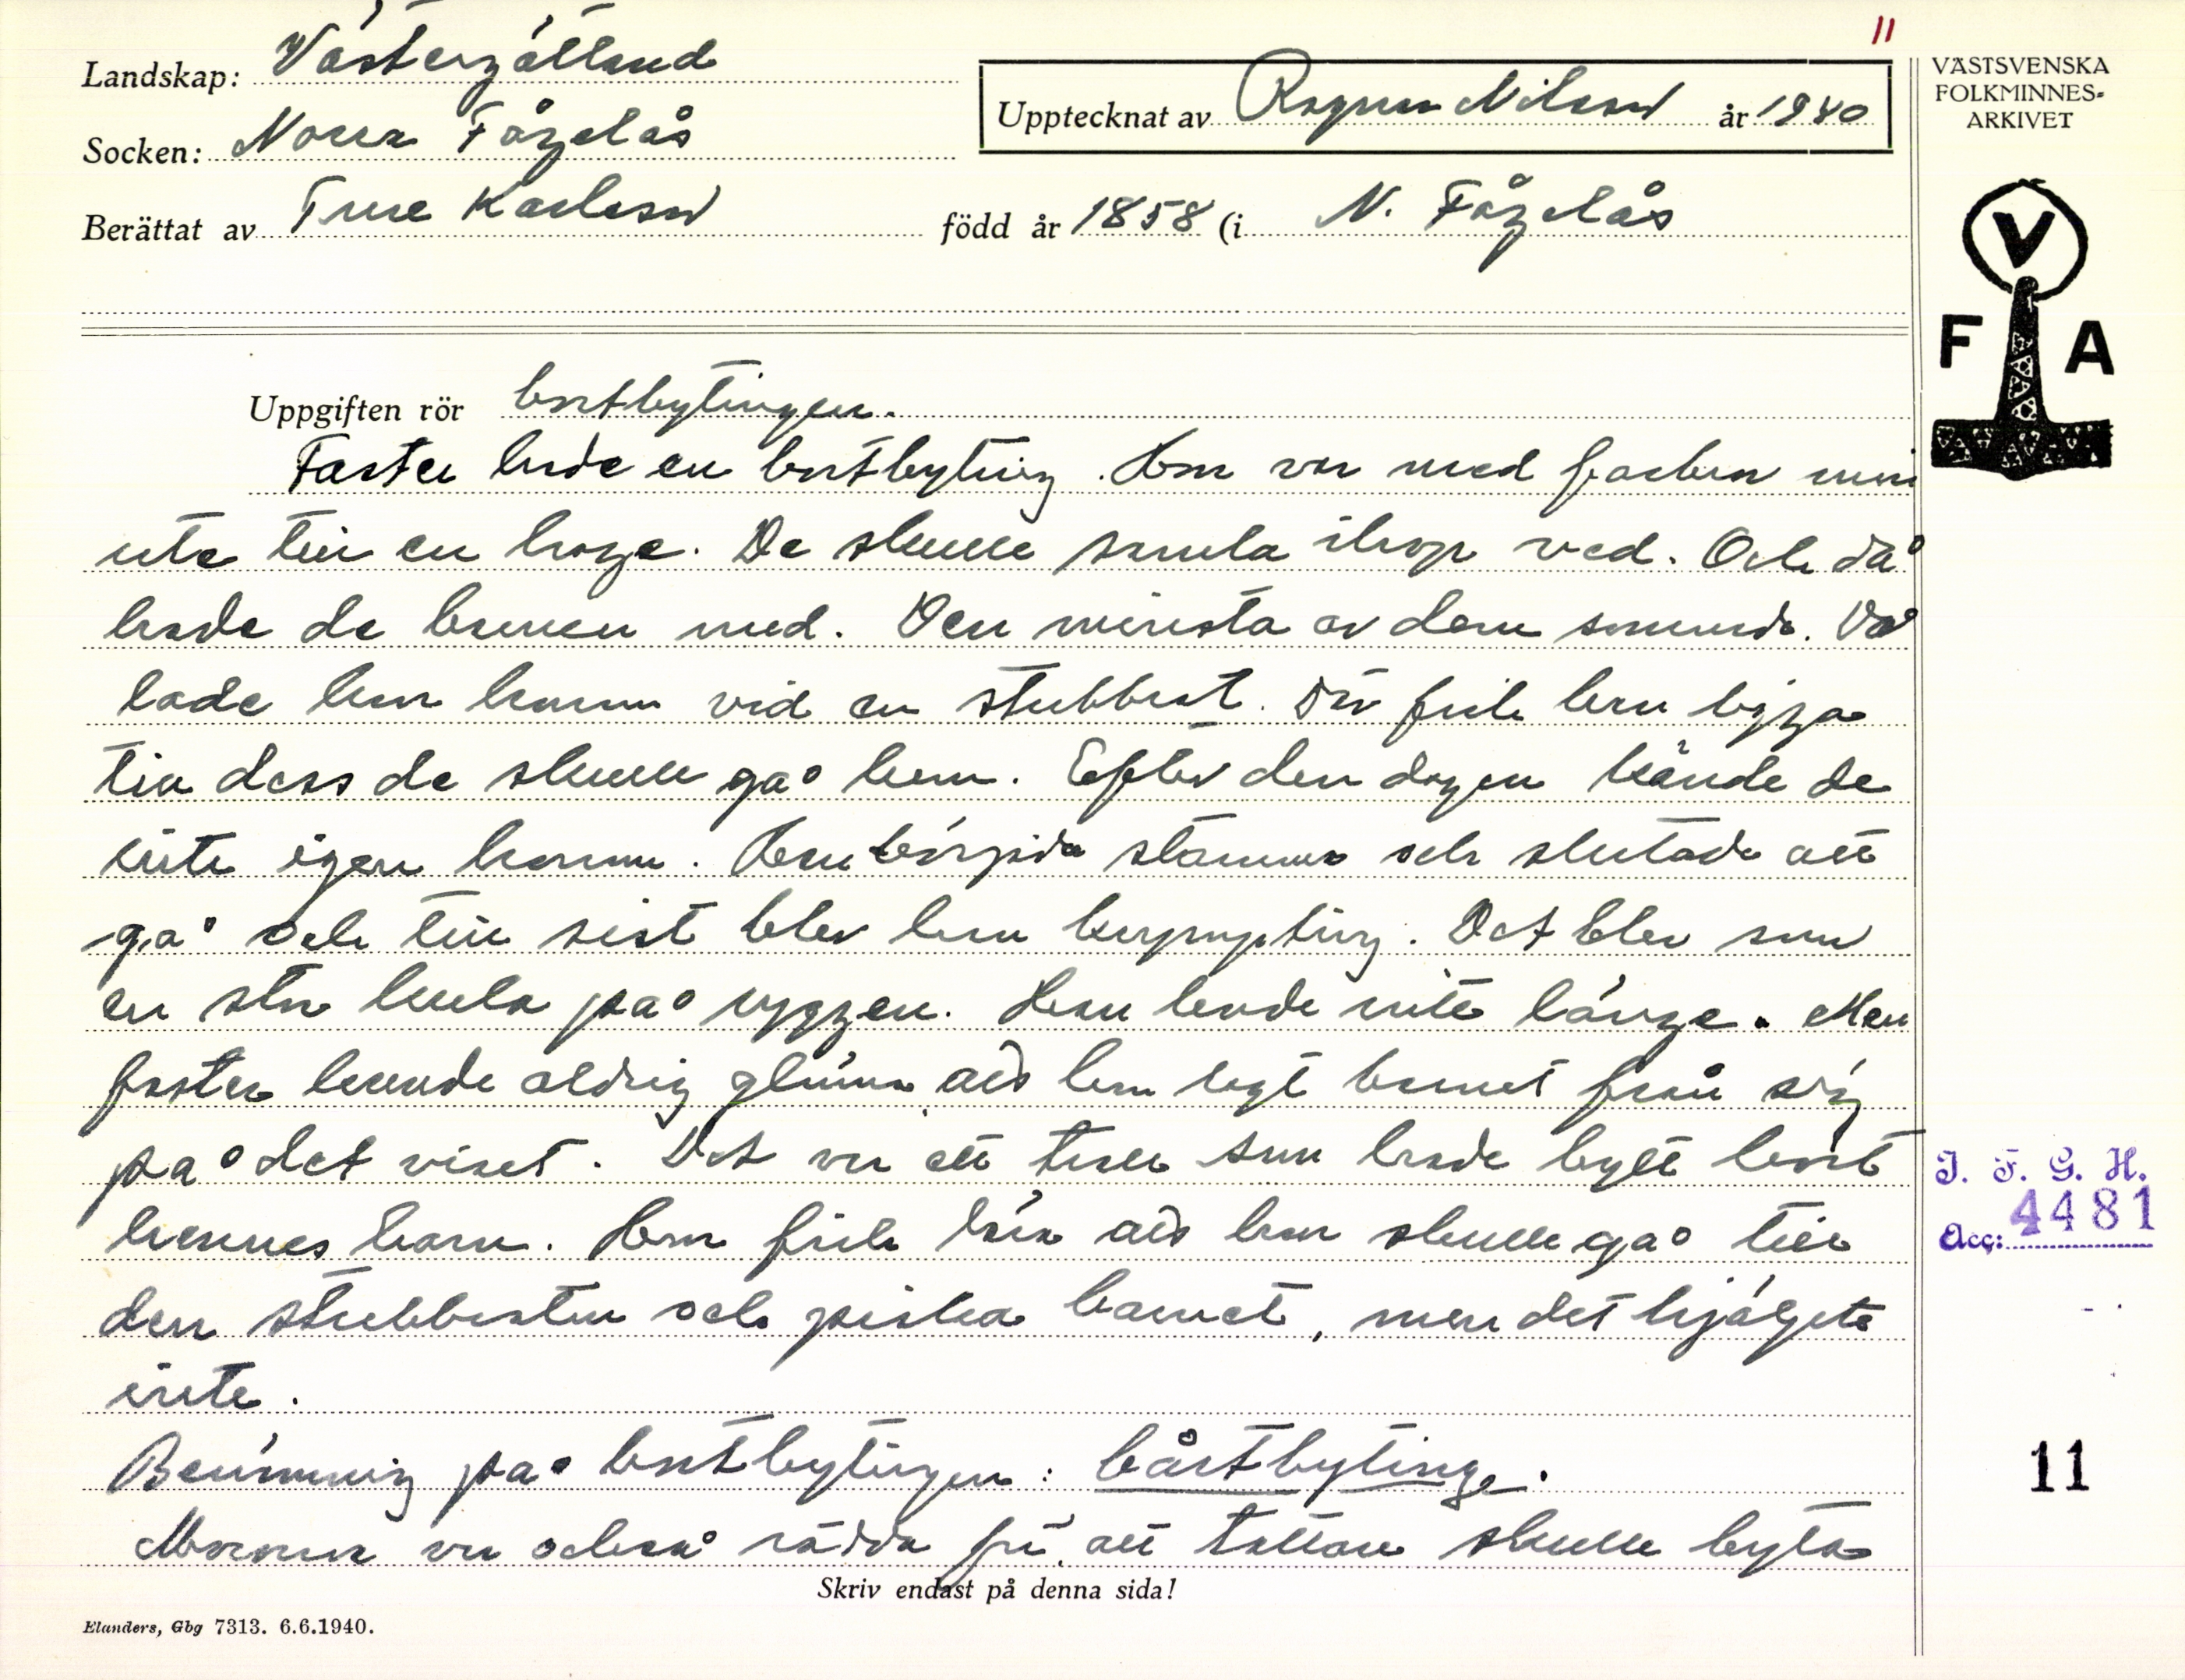 11
Landskap: Västergötland
Socken: Norra Fågelås
Upptecknat av Ragnar Nilsson år 1940
Berättat av Ture Karlsson född år 1858 (i N. Fågelås
VÄSTSVENSKA
FOLKMINNES-
ARKIVET
V
F A
Uppgiften rör bortbytingen.
Faster hade en bortbyting. Hon var med farbror min
ute till en hage. De skulle samla ihop ved. Och då
hade de barnen med. Den minsta av dem somnade. Då
lade hon honom vid en stubbrot. Där fick han ligga
till dess de skulle gå hem. Efter den dagen kände de
inte igen honom. Han började stamma och slutade att
gå och till sist blev han krympling. Det blev som
en stor kula på ryggen. Han levde inte länge. Men
faster kunde aldrig glömma att hon lagt barnet från sig
på det viset. Det var ett troll som hade bytt bort
hennes barn. Hon fick lära att hon skulle gå till
den stubbroten och piska barnet, men det hjälpte
inte.
Benämning på bortbytingen: bårtbytinge.
Mororna var också rädda för att tattare skulle byta
Skriv endast på denna sida!
Elanders, Gbg 7313. 6.6.1940.
I. F. G. H.
Acc: 4481
11